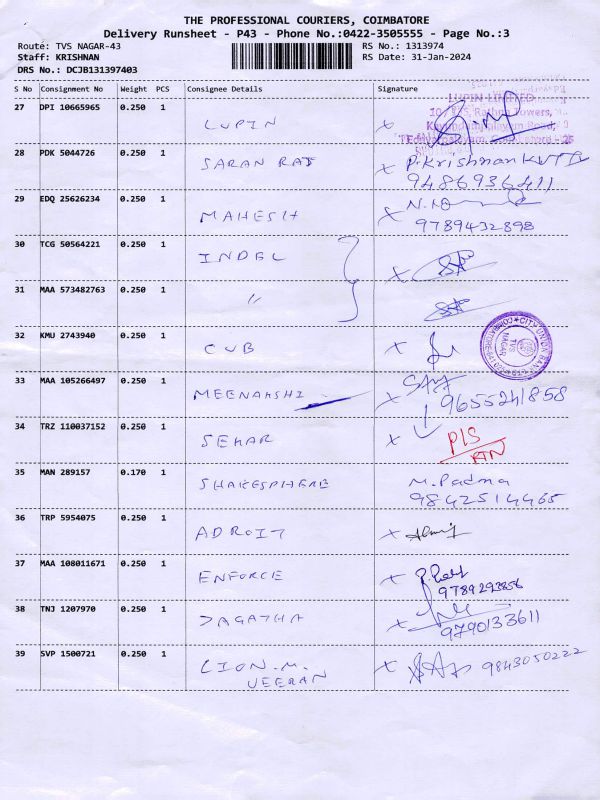 THE PROFESSIONAL COURIERS, COIMBATORE
Delivery Runsheet - P43 - Phone No.:0422-3505555 - Page No.:3
Route: TVS NAGAR-43 RS No.: 1313974
Staff: KRISHNAN RS Date: 31-Jan-2024
DRS No.: DCJB131397403
S No Consignment No Weight PCS Consignee Details Signature
27 DPI 10665965 0.250 1 LUPIN x
LUPIN LIMITED
28 PDK 5044726 0.250 1 SARAN RAJ x P. Krishnan
9486936411
29 EDQ 25626234 0.250 1 MAHESH x
9789432898
30 TCG 50564221 0.250 1 INDEL x
31 MAA 573482763 0.250 1 "
32 KMU 2743940 0.250 1 CUB x
CITY UNION BANK LTD
TVS NAGAR
33 MAA 105266497 0.250 1 MEENAKSHI x
9655241858
34 TRZ 110037152 0.250 1 SEKAR x
35 MAN 289157 0.170 1 SHAKESPHERE M. Padma
9842514465
36 TRP 5954075 0.250 1 ADROIT x
37 MAA 108011671 0.250 1 ENFORCE x
9789293856
38 TNJ 1207970 0.250 1 JAGATHA x
9790133611
39 SVP 1500721 0.250 1 LION. M. x 9843050222
VEERAN